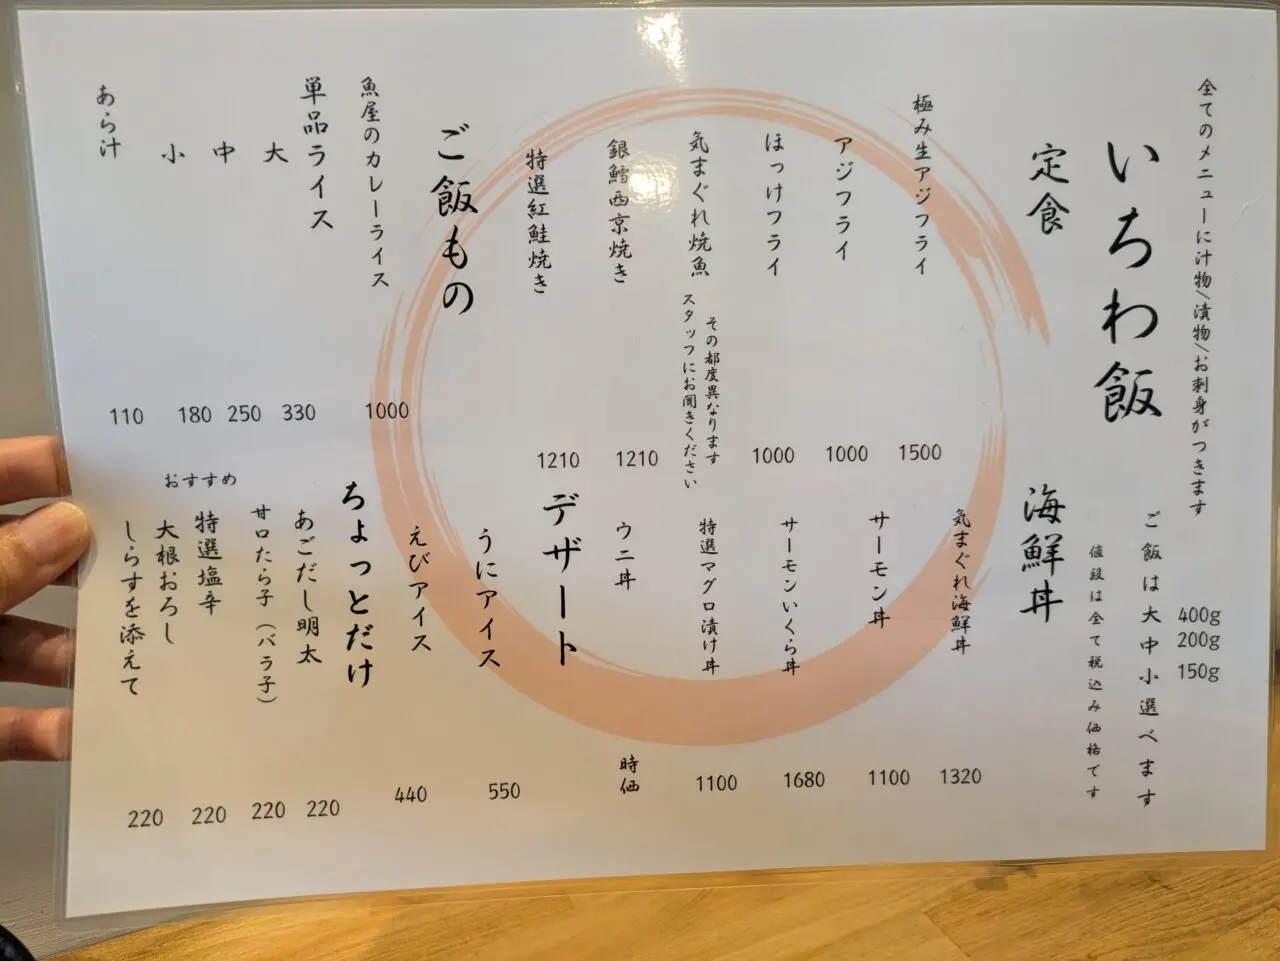 全てのメニューに汁物/漬物/お刺身がつきます
いちわ飯
ご飯は大中小選べます
400g
200g
150g
値段は全て税込み価格です
定食
極み生アジフライ 1500
アジフライ 1000
ほっけフライ 1000
気まぐれ焼魚
その都度異なります
スタッフにお聞きください
銀鱈西京焼き 1210
特選紅鮭焼き 1210
海鮮丼
気まぐれ海鮮丼 1320
サーモン丼 1100
サーモンいくら丼 1680
特選マグロ漬け丼 1100
ウニ丼 時価
ご飯もの
魚屋のカレーライス 1000
単品ライス
大 330
中 250
小 180
あら汁 110
デザート
うにアイス 550
えびアイス 440
ちょっとだけ
あごだし明太 220
甘口たら子（バラ子） 220
おすすめ
特選塩辛 220
大根おろし
しらすを添えて 220